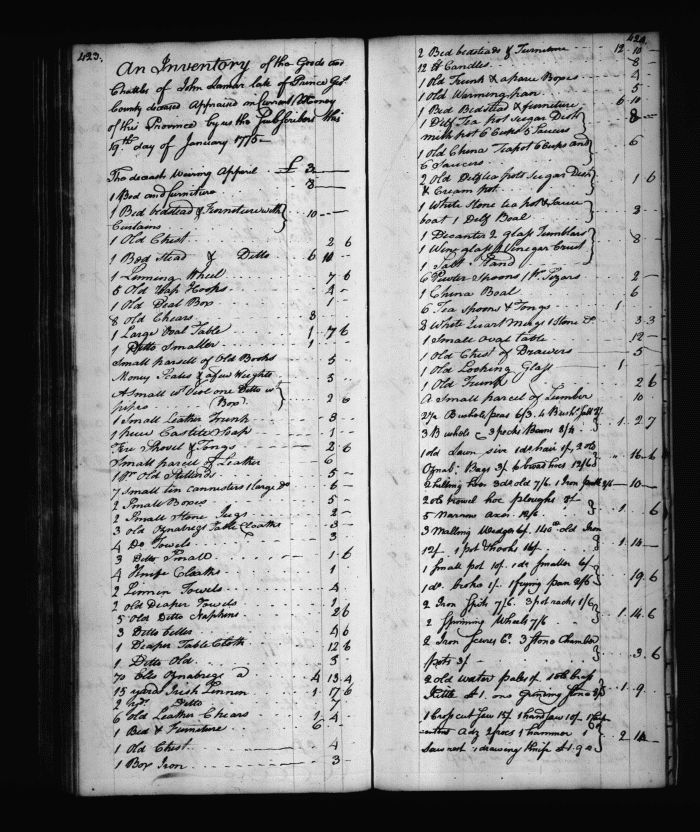 423.
An Inventory of the Goods and
Chattles of John Lamar late of Prince Geo'
County deceased Appraised in Current Money
of this Province by us the Subscribers this
19th day of January 1775
The deceasd Waring Apparil £ 3
1 Bed and furniture 8
1 Bed bedstead & Furniture with
Curtains 10
1 Old Chest 2 6
1 Bed Stead & Ditto 6 10
1 Linning Wheel 7 6
5 Old Hooks 4
1 Old Deal Box 1
8 Old Chears 8
1 Large Oval Table 1 7 6
1 Ditto Smaller 1
Small parcell of Old Books 5
Money Scales & a few Weights 5
A Small
(Box) 2 6
1 Small Leather Trunk 8
1 piece Castile Soap 1
Fire Shovel & Tongs 2 6
Small parcel of Leather 6
1 Pr Old Stillerds 5
7 Small tin cannisters 1 large Do 6
2 Small Boxes 5
2 Small Stone Jugs 2
3 old Oznabrigs Table Cloaths 3
4 Do Towels 3
3 Ditto Small 1 6
4 Knife Cloaths 1
2 Linnen Towels 4
2 old Diaper Towels 1
5 Old Ditto Napkins 2 6
3 Ditto better 4 6
1 Diaper Table Cloth 12 6
1 Ditto Old 5
70 Ells Oznabrigs a 4 13 4
15 yards Irish Linnen 1 17 6
2 yds. Ditto 7
6 Old Leather Chears 1 4
1 Bed & Furniture 6
1 Old Chest 4
1 Box Iron 3
424.
2 Bed bedsteads & Furniture 12 10
12 lb Candles 8
1 Old Trunk & a pare Boxes 4
1 Old Warming pan 5
1 Bed Bedstead & furniture 6 10
1 Delf Tea pot Sugar Dish
milk pot 6 Cups 5 Saucers 8
1 Old China Teapot 6 Cups and
6 Saucers 6
2 Old Delf tea pots Sugar Dish
& Cream pot 1 6
1 White Stone tea pot & Sauce
boat 1 Delf Boal 3
1 Decanter 2 glass Tumblers
1 Wine glass 1 Vinegar Cruet
1 Salt Stand 8
6 Pewter Spoons 1 Pr Tegars 2
1 China Boal 6
6 Tea Spoons & Tongs 1
8 White Quart Mugs 1 Stone Do 3 3
1 Small Oval table 12
1 Old Chest of Drawers 5
1 Old Looking Glass 1
1 Old Trunk 2 6
A Small parcel of Lumber 10
27½ Bushels peas 6/3 4 Bush. Salt
3 Bushels & 3 pecks Beans 2/4 1 2 7
1 old Lawn sive 1 do hair 1/ 2 old
Oznab: Bags 3/ 6 broad hoes 12/6 16 6
2 hilling hoes 3 do old 7/6 1 Iron 10
2 old trowel hoe ploughs
5 Narrow Axes 12/6 1 6
3 Malling Wedges 6/ 140 lb old Iron
12/ 1 pot & hooks 16/ 1 14
1 Small pot 10/ 1 do Smaller 6/
1 do. broke 1/ 1 frying pan 2/6 19 6
2 Iron Spits 7/6 3 pot racks 1/6
2 Spinning Wheels 7/6 1 14 6
2 Iron 6d 3 Stone Chamber
pots 3/ 3 6
2 old water pales 1/ 1 old brass
Kettle £1. one Grinding Stone 1 9
1 Crop cut Saw 15/ 1 hand Saw 10/
Adz 2 1 hammer 1
Saw rest 1 drawing Knife 2 14